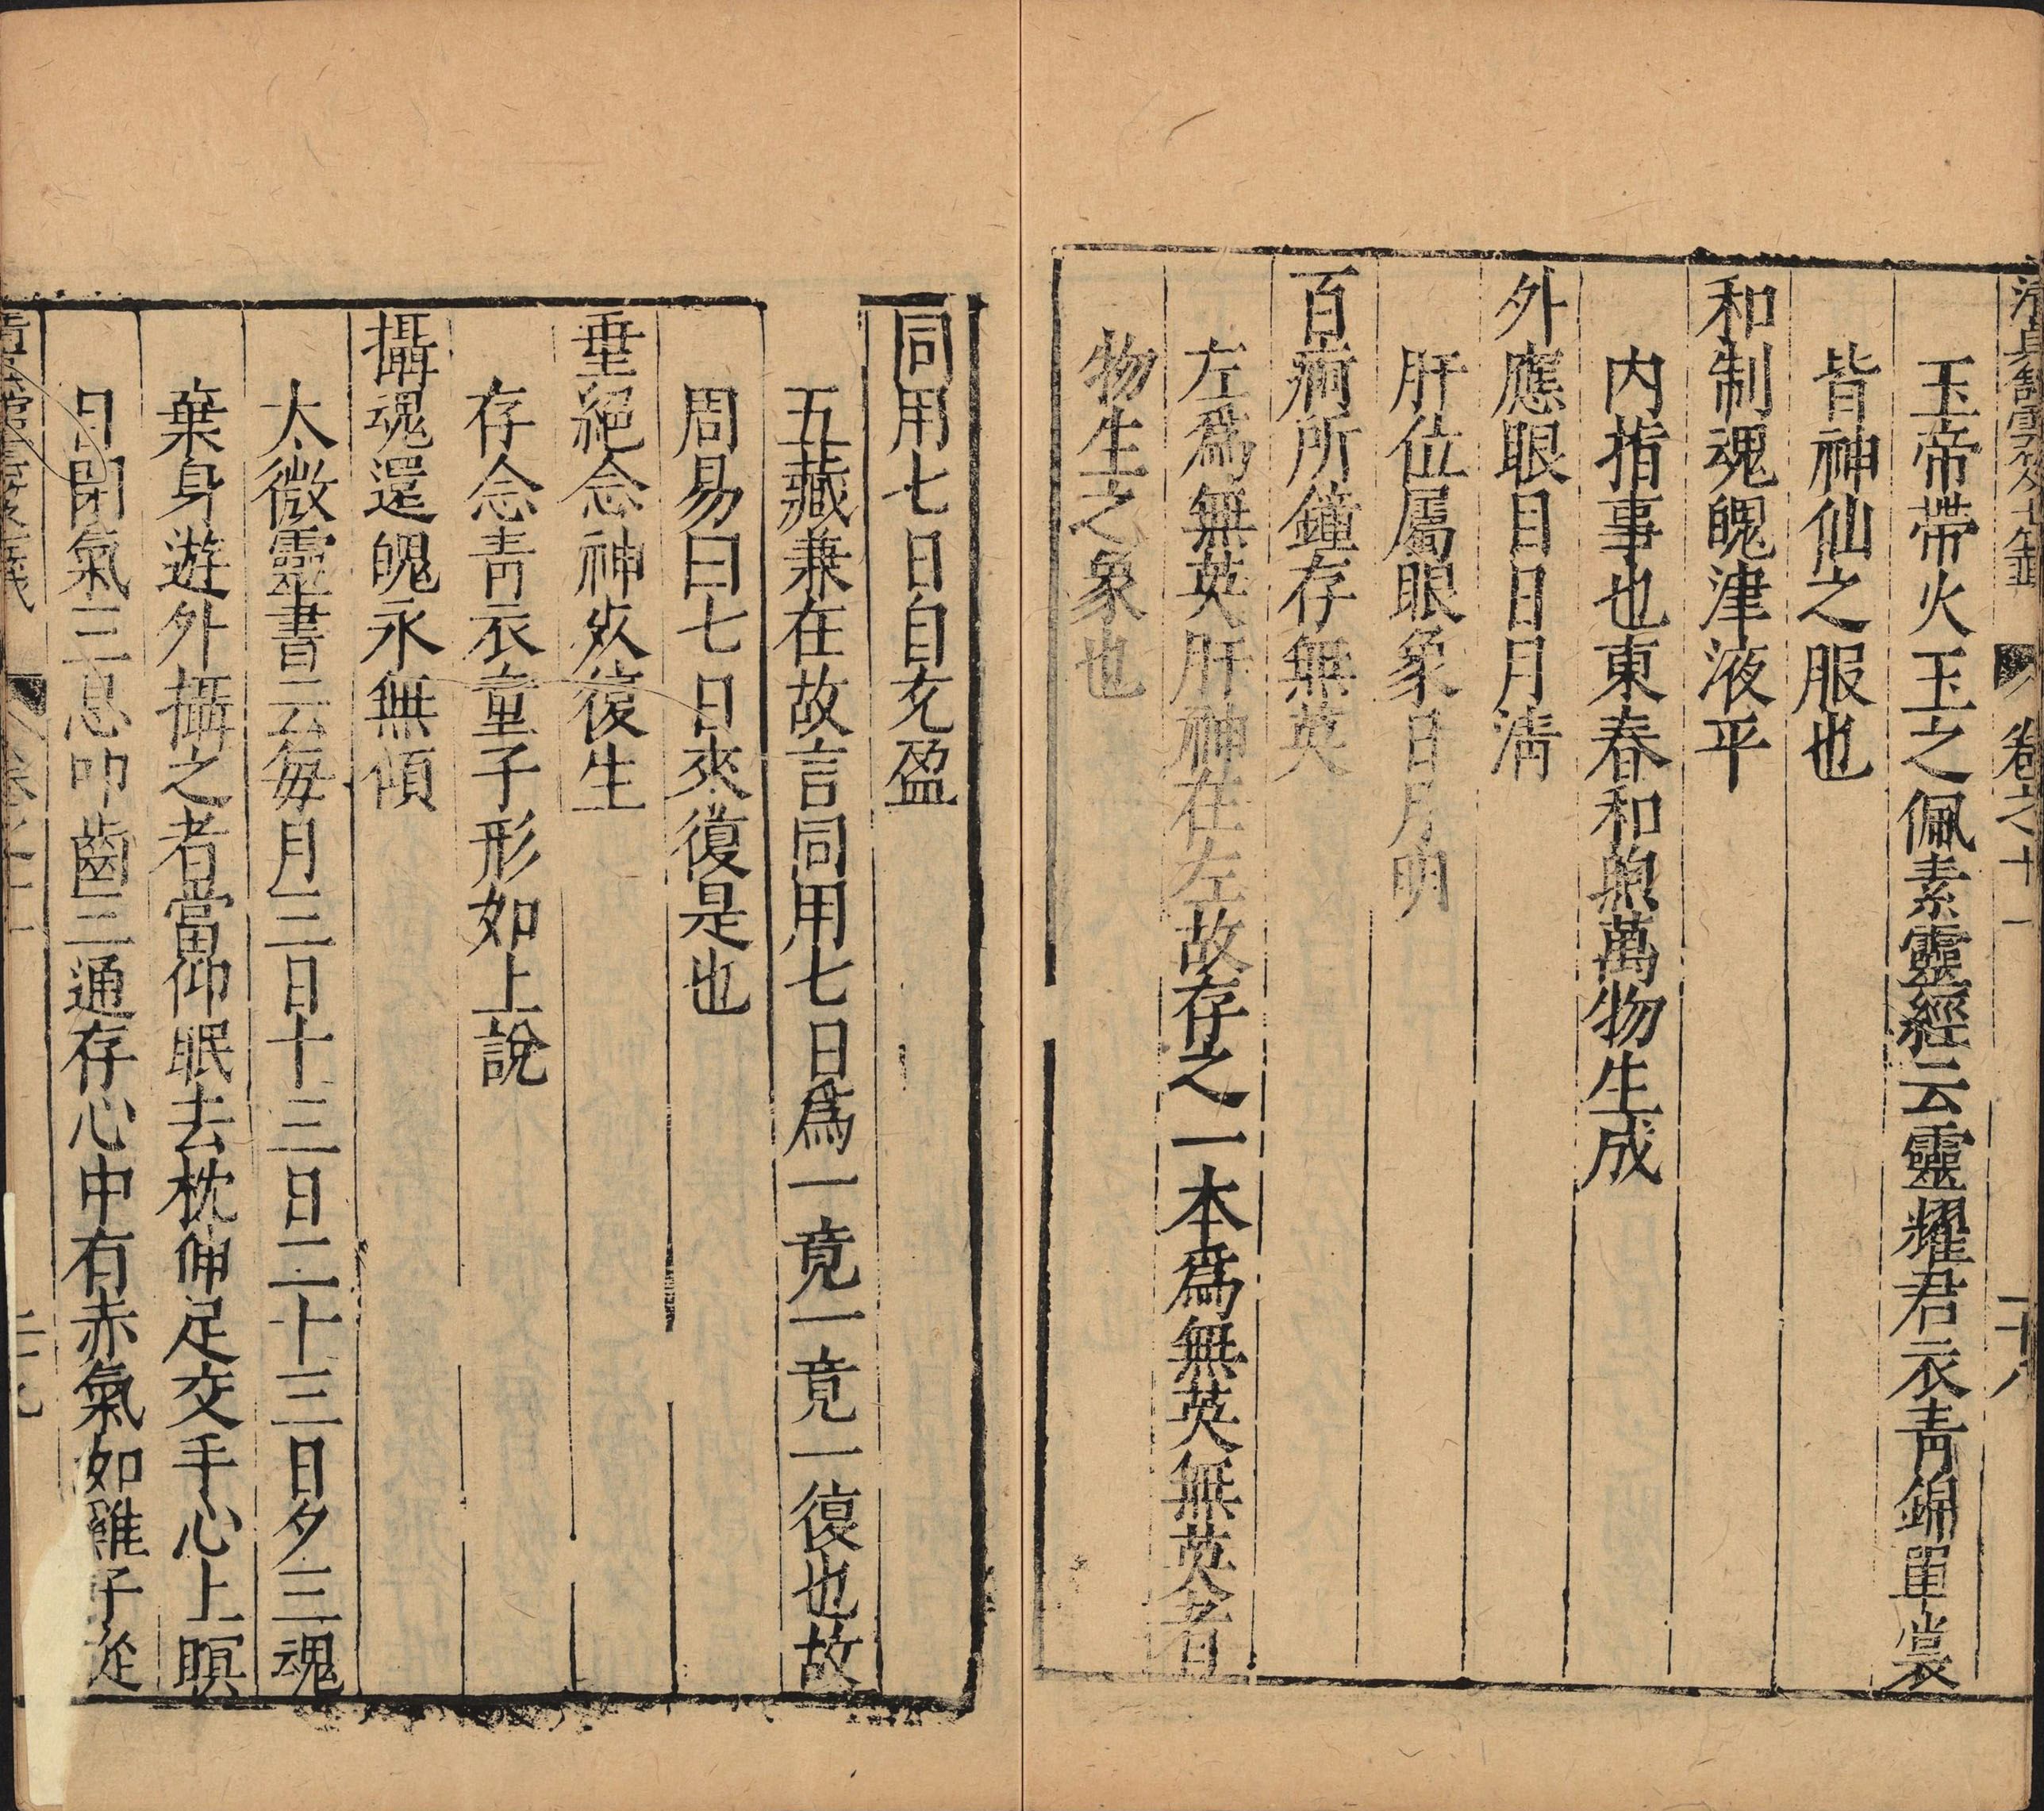 卷之十一
二十八
玉帝帶火玉之佩素靈經云靈耀君衣青錦單裳
皆神仙之服也
和制魂魄津液平
内指事也東春和煦萬物生成
外應眼目日月淸
肝位屬眼象日月明
百痾所鐘存無英
左爲無英肝神在左故存之一本爲無英無英者
物生之象也
同用七日自充盈
五藏兼在故言同用七日爲一竟一竟一復也故
周易曰七日來復是也
垂絕念神死復生
存念靑衣童子形如上說
攝魂還魄永無傾
太微靈書云每月三日十三日二十三日夕三魂
棄身遊外攝之者當仰眠去枕伸足交手心上瞑
目閉氣三息叩齒三通存心中有赤氣如雞子從
二十九